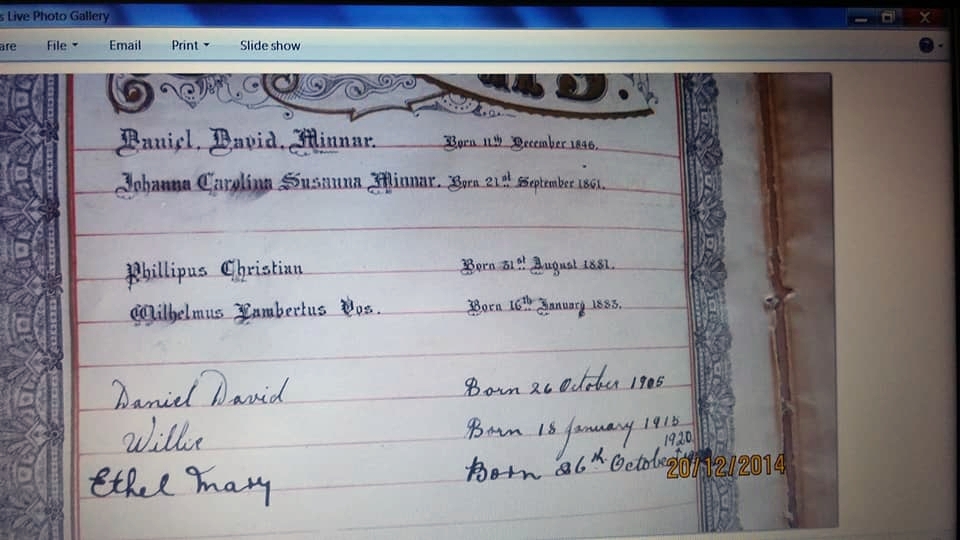 s Live Photo Gallery
are File Email Print Slide show
Daniel. David. Minnar. Born 11th December 1846.
Johanna Carolina Susanna Minnar. Born 21st September 1861.
Phillipus Christian Born 31st August 1881.
Wilhelmus Lambertus Vos. Born 16th January 1883.
Daniel David Born 26 October 1905
Willie Born 18 January 1915
1920
Ethel Mary Born 26th October
20/12/2014